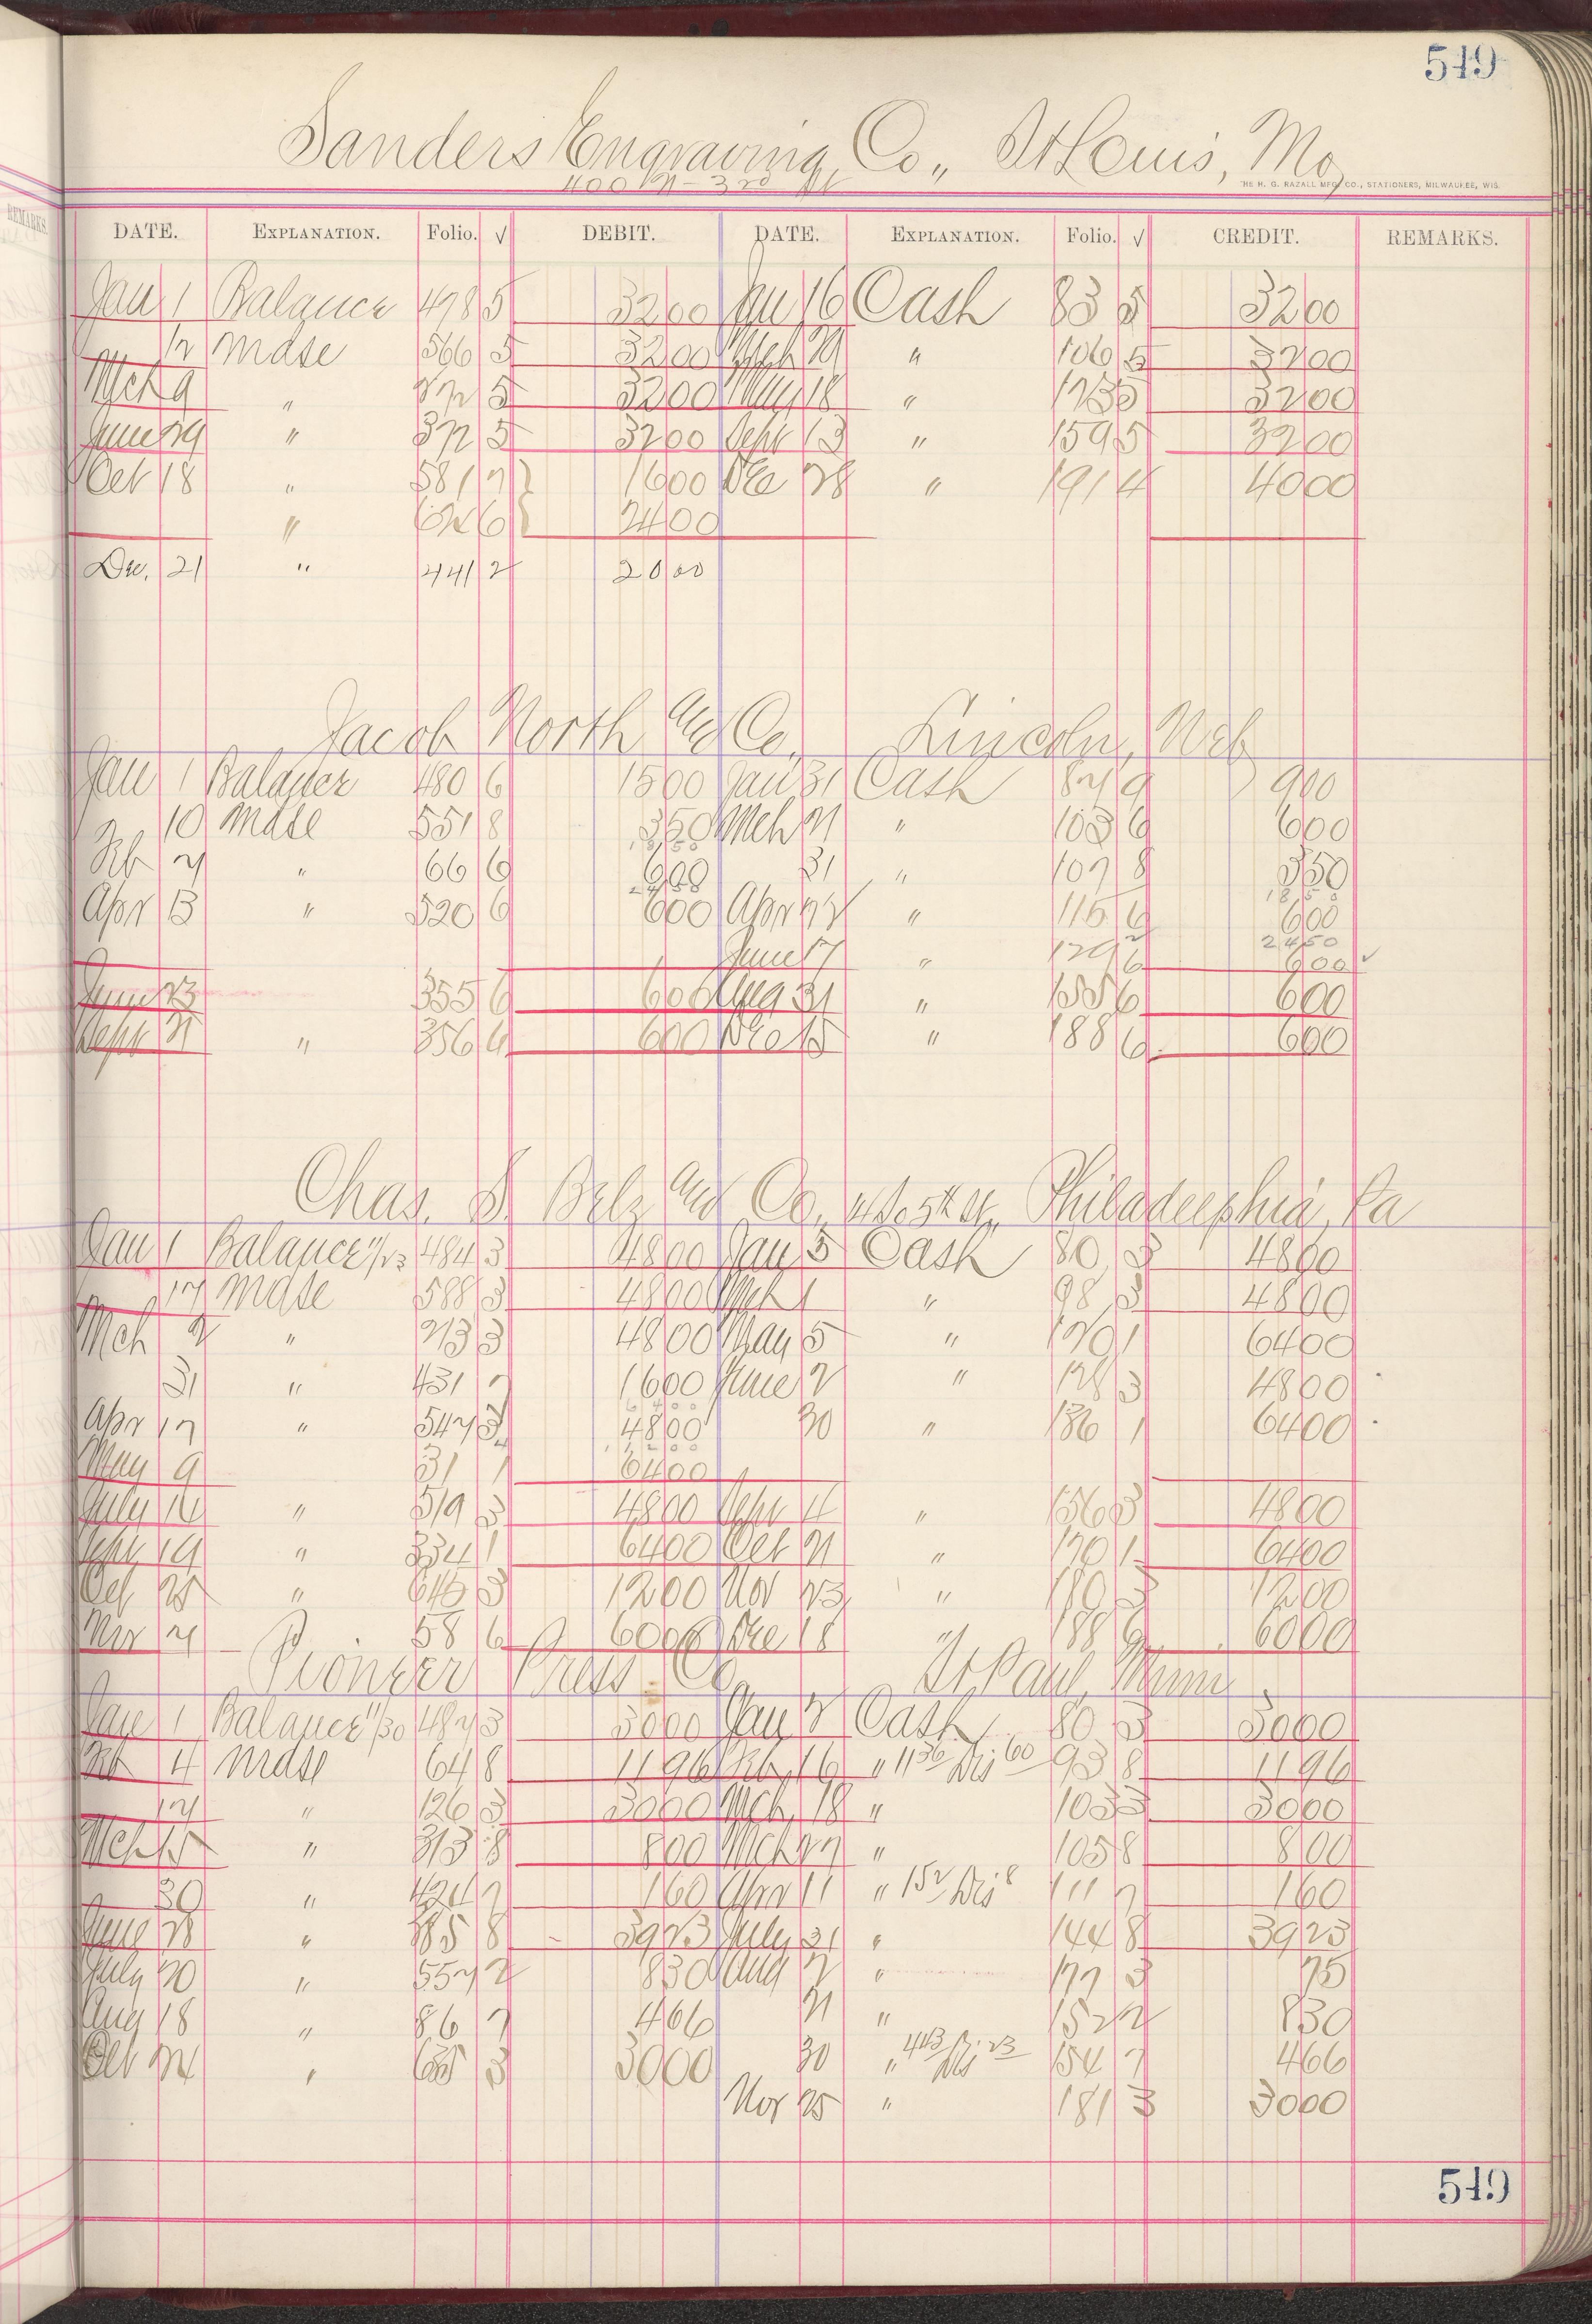 549
Sanders Engraving Co., St Louis, Mo
400 N - 3rd St
THE H. G. RAZALL MFG. CO., STATIONERS, MILWAUKEE, WIS.
REMARKS.
DATE. EXPLANATION. Folio. √ DEBIT. DATE. EXPLANATION. Folio. √ CREDIT. REMARKS.
Jan 1 Balance 478 5 3200 Jan 16 Cash 83 5 3200
12 Mdse 566 5 3200 Mch 29 " 106 5 3200
Mch 9 " 272 5 3200 May 18 " 123 5 3200
June 29 " 372 5 3200 Sept 13 " 159 5 3200
Oct 18 " 581 7 } 1600 Dec 28 " 191 4 4000
" 626 } 2400
Dec. 21 " 441 2 2000
Jacob North and Co. Lincoln, Neb
Jan 1 Balance 480 6 1500 Jan 31 Cash 87 9 900
10 Mdse 551 8 350 Mch 21 " 103 6 600
1850
Feb 21 " 66 6 600 31 " 107 8 350
2450 1850
Apr 13 " 520 6 600 Apr 22 " 115 6 600
2450
June 17 " 129 6 600 ✓
June 23 355 6 600 Aug 31 " 155 6 600
Sept 21 " 356 6 600 Dec 15 " 188 6 600
Chas. S. Belz and Co. 4 So 5th St., Philadelphia, Pa
Jan 1 Balance 11/23 484 3 4800 Jan 5 Cash 80 3 4800
17 Mdse 588 3 4800 Mch 1 " 98 3 4800
Mch 2 " 213 3 4800 May 5 " 120 1 6400
31 " 431 7 1600 June 2 " 128 3 4800
6400
Apr 17 " 547 3 4800 30 " 136 1 6400
11200
May 9 31 1 6400
July 14 " 519 3 4800 Sept 4 " 156 3 4800
Sept 19 " 334 1 6400 Oct 21 " 170 1 6400
Oct 25 " 645 3 1200 Nov 23 " 180 3 1200
Nov 21 58 6 6000 Dec 18 " 188 6000
Pioneer Press Co. St Paul, Minn
Jan 1 Balance 11/30 487 3 3000 Jan 2 Cash 80 3 3000
Feb 4 Mdse 64 8 1196 Feb 16 " 1136 Dis 60 93 8 1196
17 " 126 3 3000 Mch 18 " 103 3 3000
Mch 15 " 313 8 800 Mch 27 " 105 8 800
30 " 424 7 160 Apr 11 " 152 Dis 8 111 7 160
June 28 " 385 8 3923 July 31 " 144 8 3923
July 20 " 557 2 830 Aug 2 " 177 3 75
Aug 18 " 86 7 466 21 " 152 2 830
Oct 24 " 635 3 3000 30 " 443 Dis 23 154 7 466
Nov 25 " 181 3 3000
549